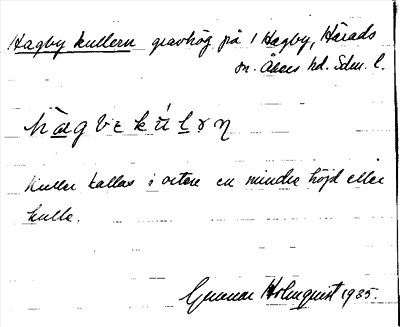 Hagby kullern gravhög på 1 Hagby, Härads
sn. Åkers hd. Sdm. l.
hagbekulən
Kuller kallas i orten en mindre höjd eller
kulle.
Gunnar Holmquist 1935.